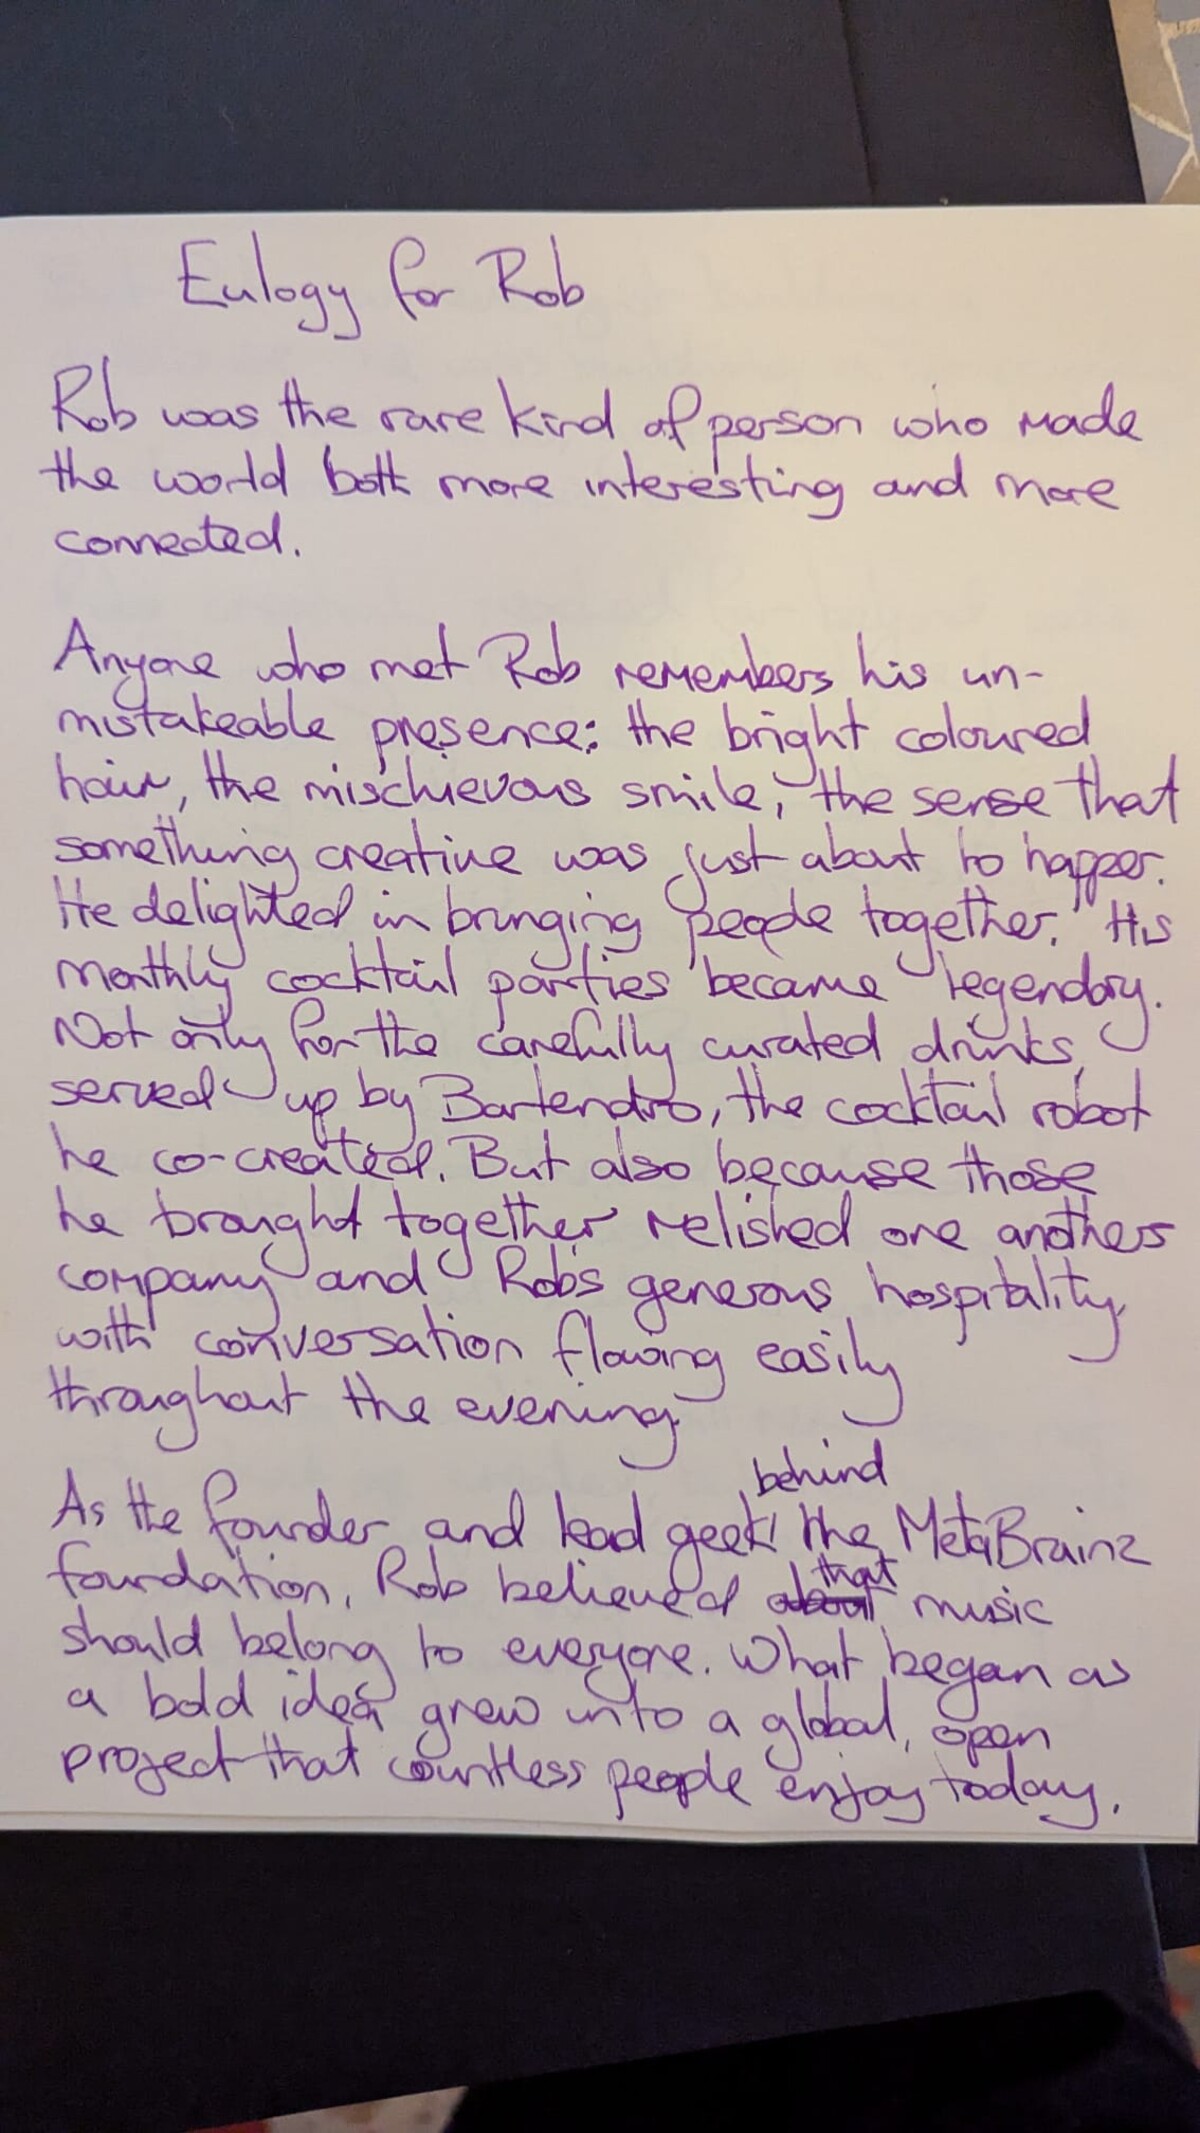 Eulogy for Rob
Rob was the rare kind of person who made
the world both more interesting and more
connected.
Anyone who met Rob remembers his un-
mistakeable presence: the bright coloured
hair, the mischievous smile, the sense that
something creative was just about to happen.
He delighted in bringing people together. His
monthly cocktail parties became legendary.
Not only for the carefully curated drinks,
served up by Bartendro, the cocktail robot
he co-created. But also because those
he brought together relished one anothers
company and Robs generous hospitality,
with conversation flowing easily
throughout the evening.
As the founder and lead geek behind the MetaBrainz
foundation, Rob believed that music
should belong to everyone. What began as
a bold idea grew into a global, open
project that countless people enjoy today.